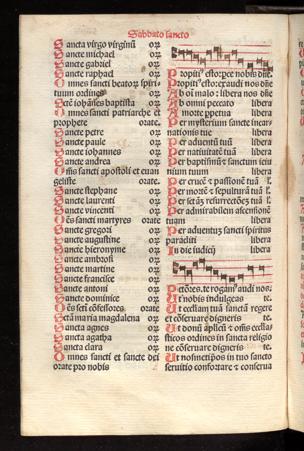 Sabbato sancto
Sancta virgo virginū orꝫ
Sancte michael orꝫ
Sancte gabriel orꝫ
Sancte raphael orꝫ
Omnes sancti beatoꝝ spiri-
tuum ordines
Scē iohānes baptista orꝫ
Omnes sancti patriarche et
prophete orate.
Sancte petre orꝫ
Sancte paule orꝫ
Sancte iohannes orꝫ
Sancte andrea orꝫ
Oēs sancti apostoli et euan
geliste orate.
Sancte stephane orꝫ
Sancte laurenti orꝫ
Sancte vincenti orꝫ
Oēs sancti martyres orate
Sancte gregori orꝫ
Sancte augustine orꝫ
Sancte hieronyme orꝫ
Sancte ambrosi orꝫ
Sancte martine orꝫ
Sancte francisce orꝫ
Sancte antoni orꝫ
Sancte dominice orꝫ
Oēs scti cōfessores orate
Sctā maria magdalena orꝫ
Sancta agnes orꝫ
Sancta agatha orꝫ
Sancta clara orꝫ
Omnes sancti et sancte dei
orate pro nobis
Propiti⁹ esto: ꝑce nobis dn̄e
Propiti⁹ esto: exaudi nos dn̄e
Ab oī malo: libera nos dn̄e
Ab omni peccato libera
A morte ꝑpetua libera
Per mysterium sancte incar
nationis tue libera
Per aduentū tuū libera
Per natiuitatē tuā libera
Per baptismū et sanctum ieiu
nium tuum libera
Per crucē et passionē tuā
Per mortē et sepulturā tuā
Per sctāꝫ resurrectōeꝫ tuā
Per admirabilem ascensionē
tuam libera
Per aduentuꝫ sancti spiritus
paracliti libera
In die iudicij libera
Peccatores. te rogam⁹ audi nos.
Ut nobis indulgeas te.
Ut ecclīam tuā sanctā regere
et cōseruare digneris te.
Ut donū apl̄icū et oēs eccl̄ia
sticos ordines in sancta religio
ne cōseruare digneris te.
Ut nosmetip̄os in tuo sancto
seruitio confortare et conserua